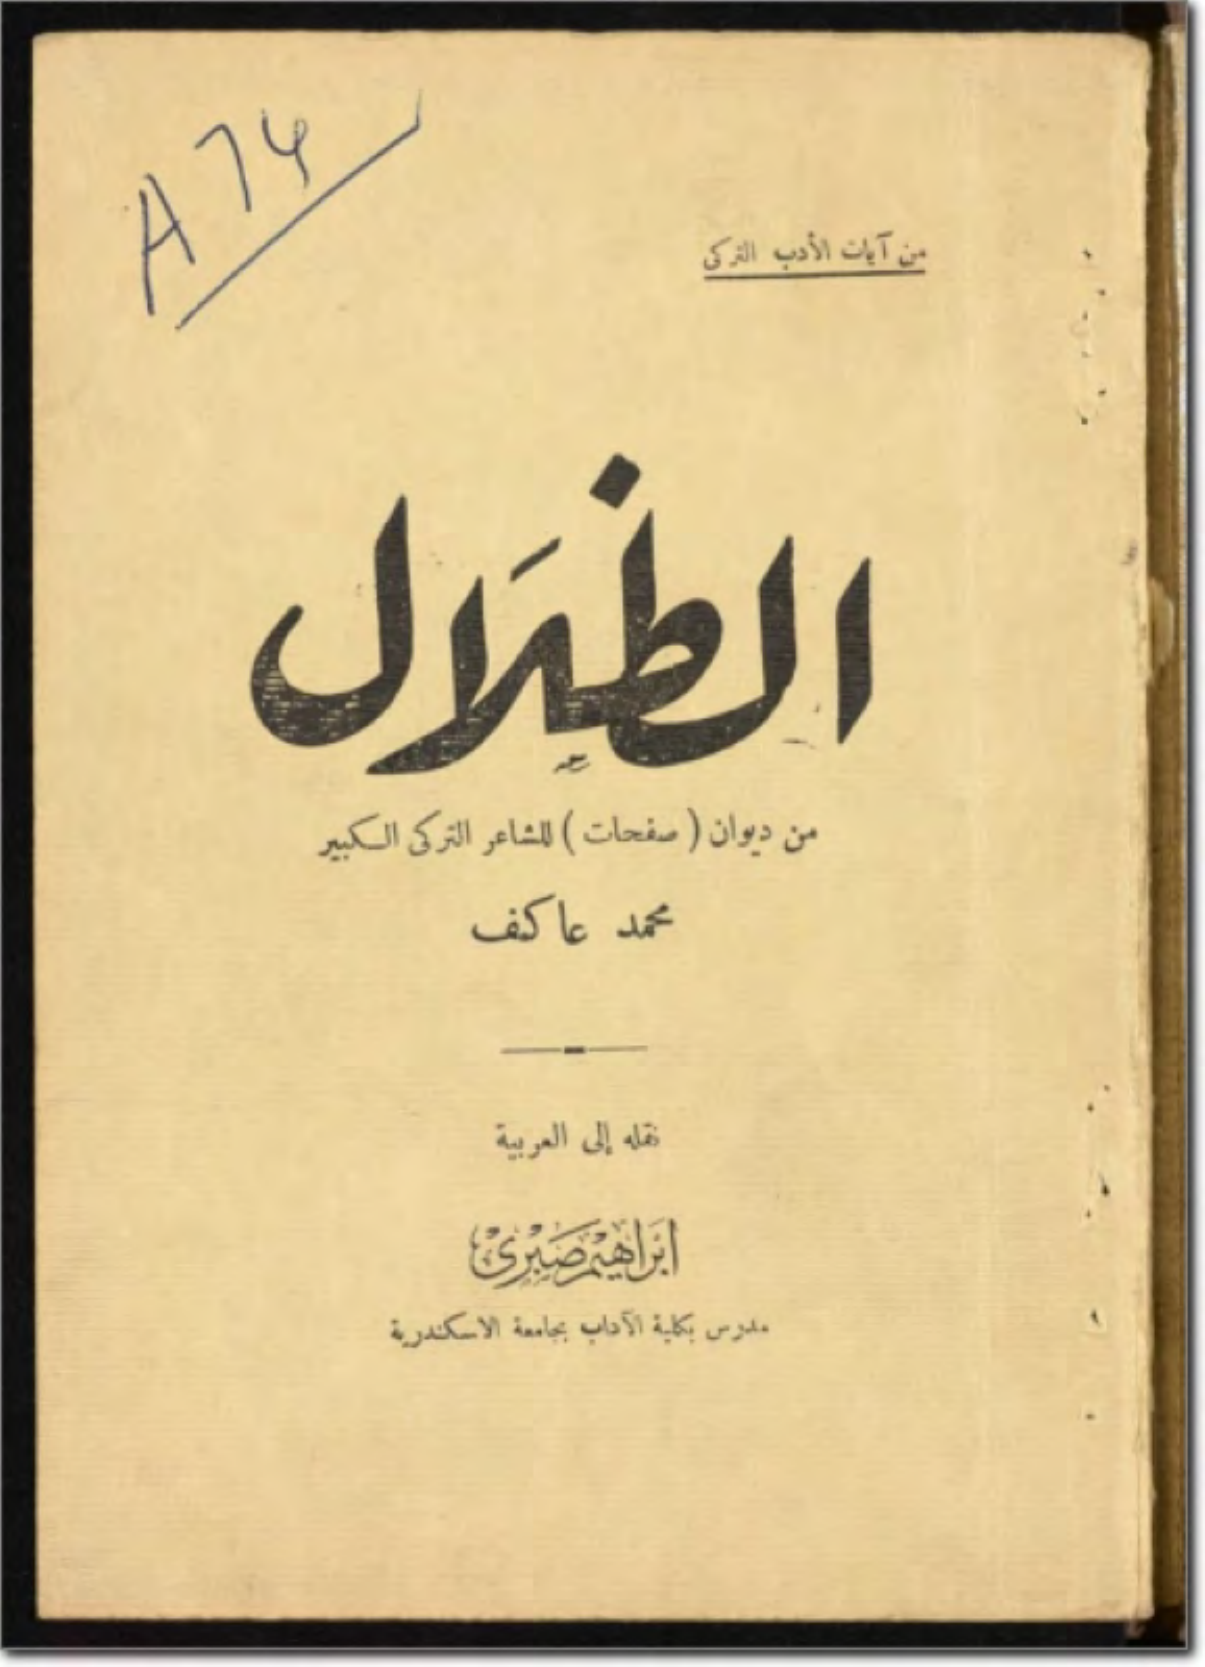 A 74
من آيات الأدب التركى
الظلال
من ديوان ( صفحات ) للشاعر التركى الكبير
محمد عاكف
نقله إلى العربية
ابَراهيْم صَبْرىْ
مدرس بكلية الآداب بجامعة الاسكندرية